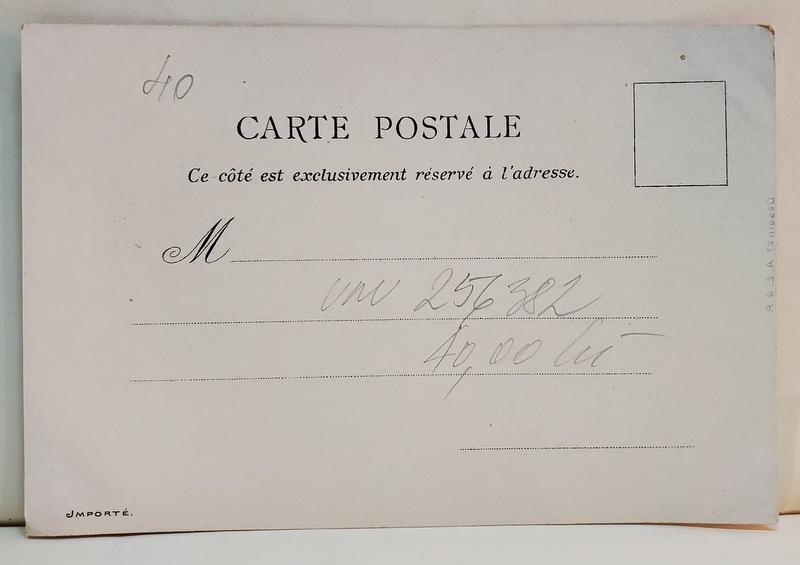 40
CARTE POSTALE
Ce côté est exclusivement réservé à l'adresse.
M
256382
40,00 lei
IMPORTÉ.